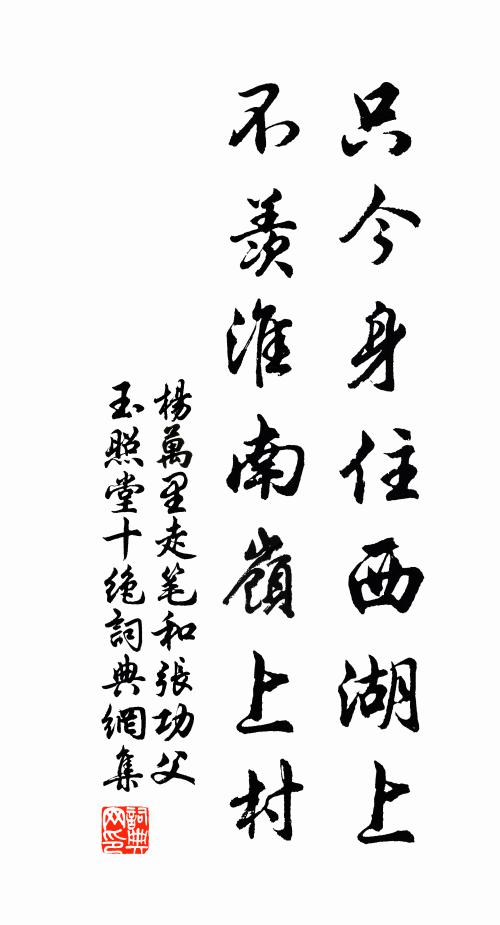 只今身住西湖上
不羨淮南嶺上村
楊萬里走笔和張功父
玉照堂十絶詞典網集
詞典
网印